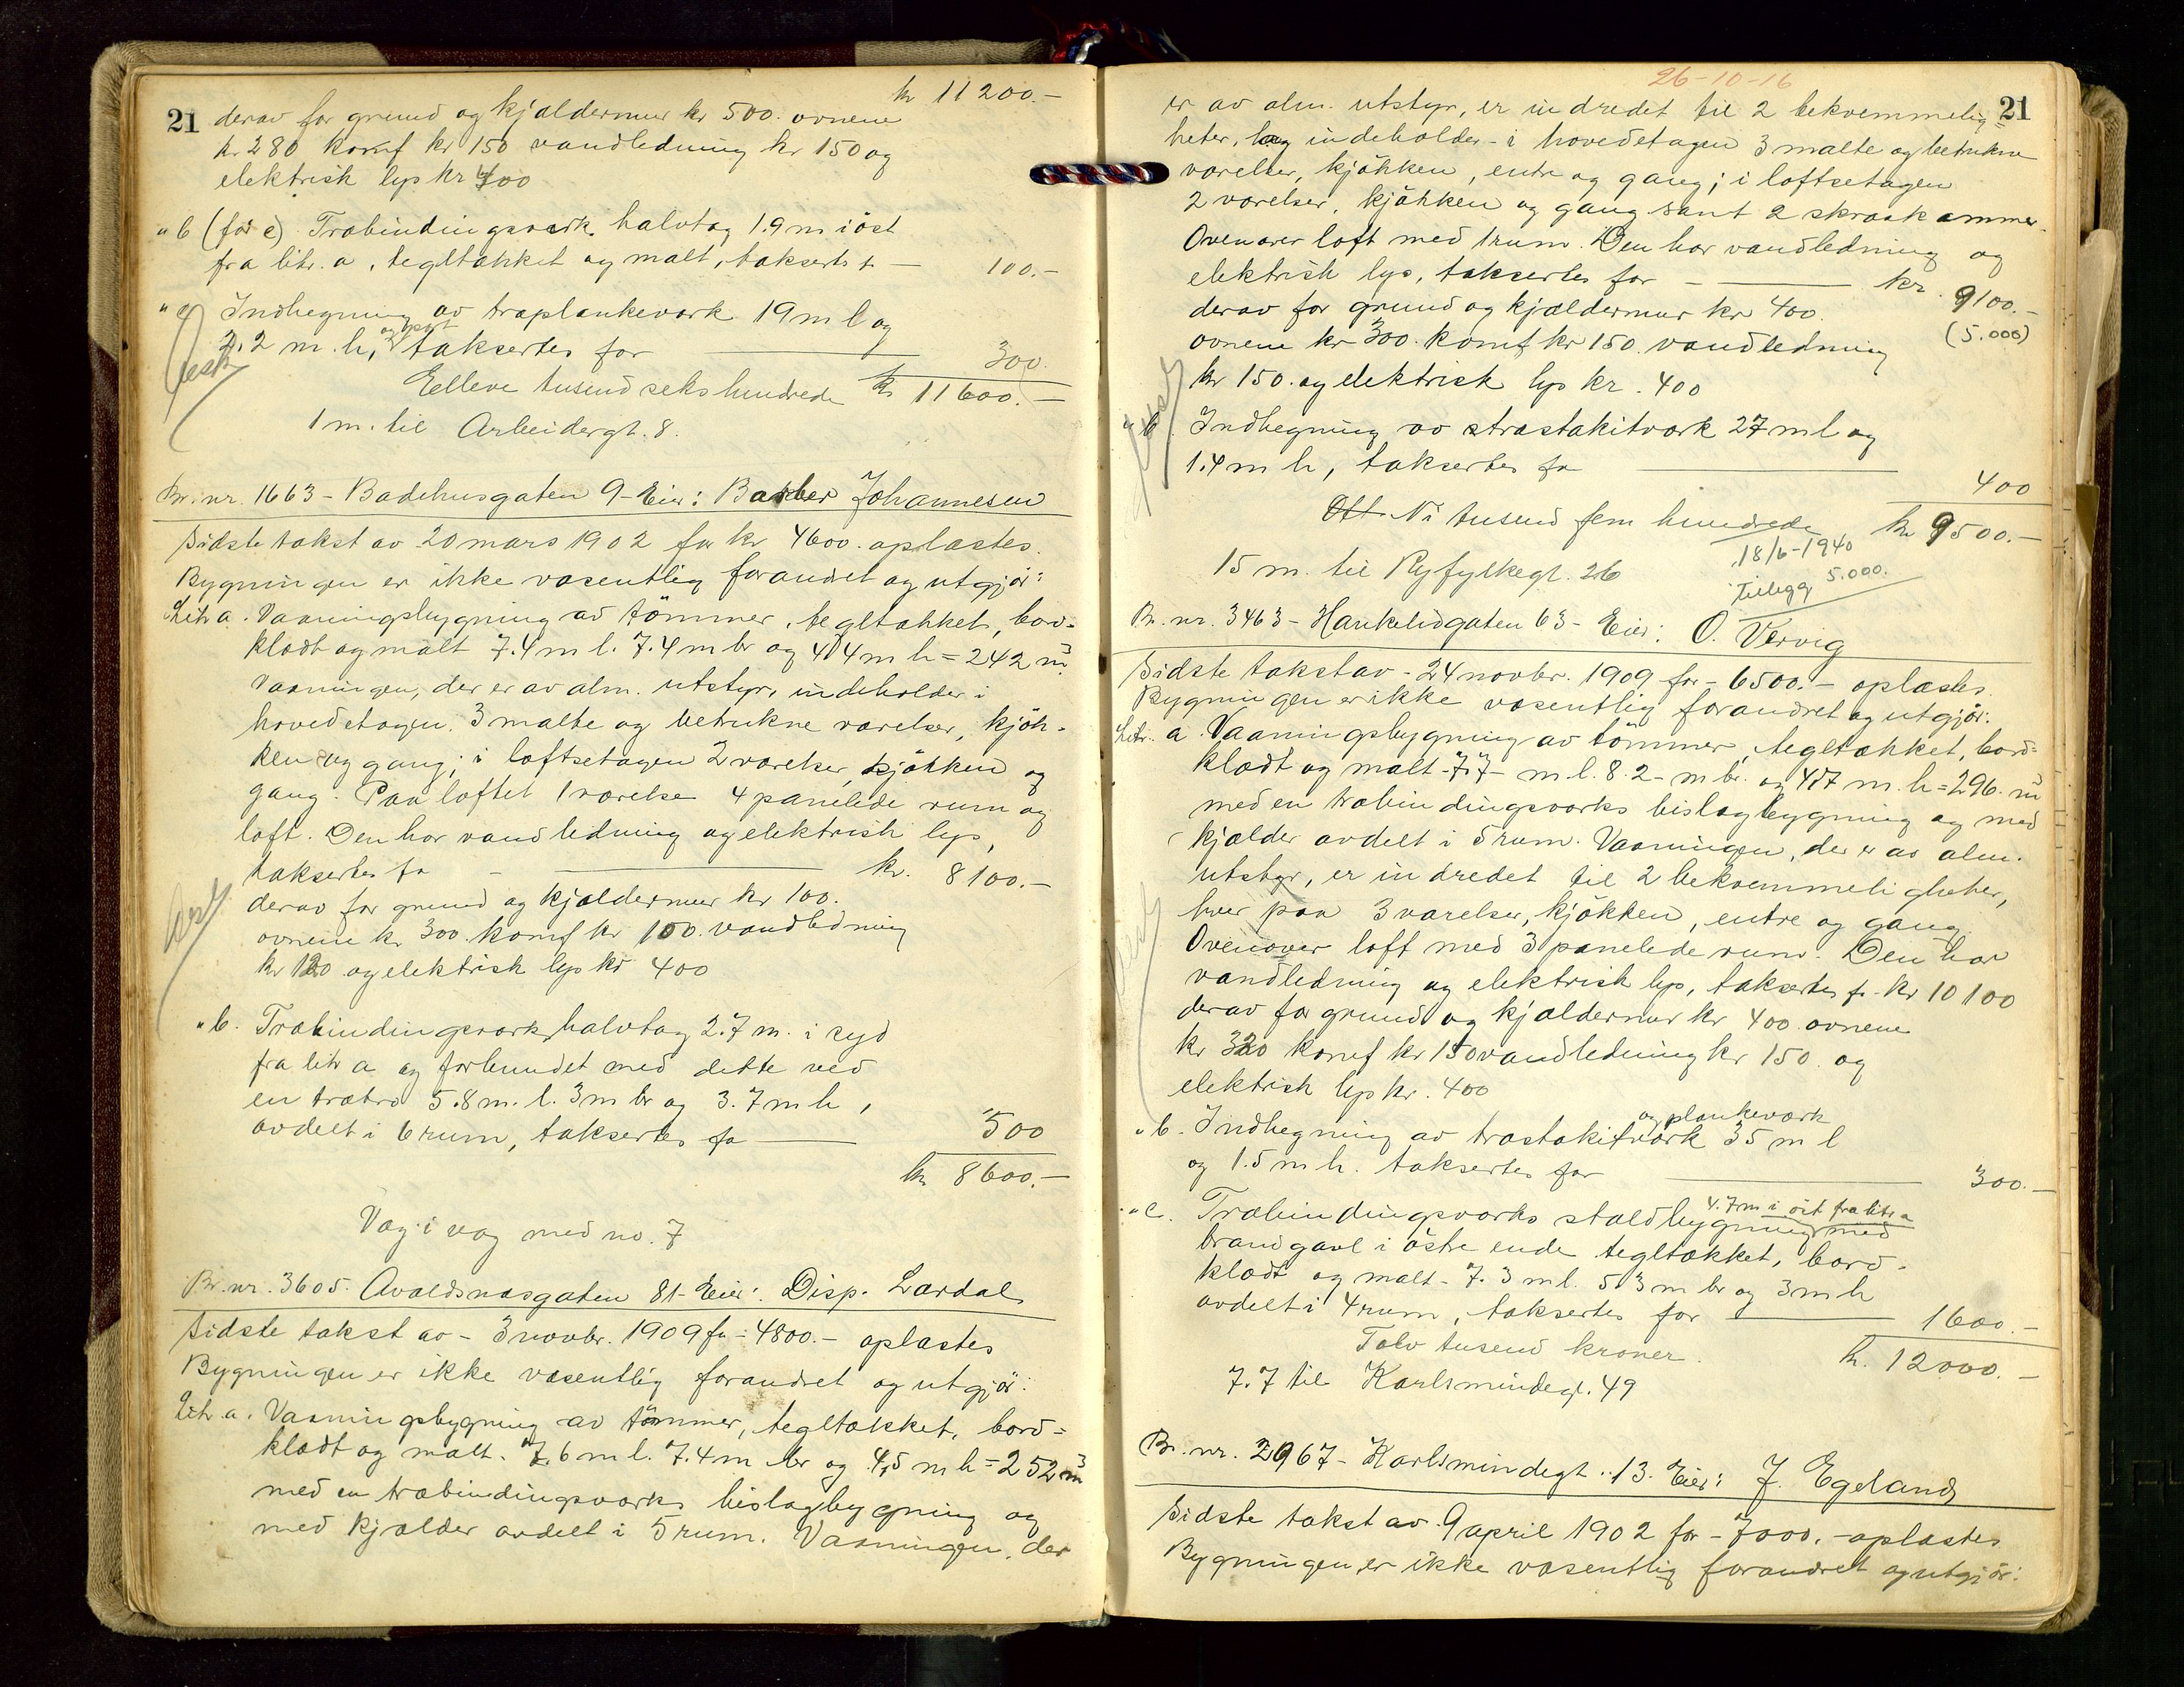 21
kr 11200.-
derav for grund og kjældermur kr 500. ovnene
kr 280 komf kr 150 vandledning kr 150 og
elektrisk lys kr 400
" b (før c) Træbindingsværk halvtag 1.9 m i öst
fra litr. a, tegltækket og malt, takseres t - 100.-
" c Indhegning av træplankeværk 19 m l og
2.2 m. h, og port takseres for 300.
Elleve tusend seks hundrede kr 11600.-
1 m. til Arbeidergt. 8.
Br. nr. 1663 - Badehusgaten 9 - Eier: Barber Johannesen
Sidste takst av 20 mars 1902 for kr 4600. oplæstes.
Bygningen er ikke væsentlig forandret og utgjör:
Litr a. Vaaningsbygning av tömmer, tegltækket, bord-
klædt og malt 7.4 m l. 7.4 m br og 4.4 m h = 242 m³
Vaaningen, der er av alm. utstyr, indeholder i
hovedetagen 3 malte og betrukne værelser, kjök-
ken og gang; i loftsetagen 2 værelser, kjökken og
gang. Paa loftet 1 værelse 4 panelede rum og
loft. Den har vandledning og elektrisk lys,
takseres for - kr. 8100.-
derav for grund og kjældermur kr 100.
ovnene kr 300. komf kr 100. vandledning
kr 120 og elektrisk lys kr 400
" b. Træbindingsværks halvtag 2.7 m. i syd
fra litr a og forbundet med dette ved
en trætro 5.8 m. l. 3 m br og 3.7 m h,
avdelt i 6 rum, takseres for 500
kr 8600.-
Væg i væg med no. 7
Br. nr. 3605. Avaldsnæsgaten 81 - Eier: Disp. Lærdal
Sidste takst av - 3 novbr. 1909 for - 4800.- oplæstes
Bygningen er ikke væsentlig forandret og utgjör:
Litr a. Vaaningsbygning av tömmer, tegltækket, bord-
klædt og malt. 7.6 m l. 7.4 m br og 4.5 m h = 252 m³
med en træbindingsværks bislagbygning og
med kjælder avdelt i 5 rum. Vaaningen, der
26-10-16
21
er av alm. utstyr, er indredet til 2 bekvemmelig-
heter, og indeholder - i hovedetagen 3 malte og betrukne
værelser, kjökken, entre og gang; i loftsetagen
2 værelser, kjökken og gang samt 2 skraakammer.
Ovenover loft med 1 rum. Den har vandledning og
elektrisk lys, takseres for - kr. 9100.-
derav for grund og kjældermur kr 400. (5.000)
ovnene kr 300. komf kr 150. vandledning
kr 150. og elektrisk lys kr. 400
" b. Indhegning av træstakitværk 27 m l og
1.4 m h, takseres for 400
Ott Ni tusend fem hundrede kr 9500.-
18/6-1940
Tillegg 5.000.
15 m. til Ryfylkegt. 26
Br. nr. 3463 - Haukeligaten 63 - Eier: O. Vervig
Sidste takst av - 24 novbr. 1909 for - 6500.- oplæstes.
Bygningen er ikke væsentlig forandret og utgjör:
Litr. a. Vaaningsbygning av tömmer, tegltækket, bord-
klædt og malt - 7.7 - m l. 8.2 - m br. og 4.7 m. h = 296. m³
med en træbindingsværks bislagbygning og med
kjælder avdelt i 5 rum. Vaaningen, der er av alm.
utstyr, er indredet til 2 bekvemmeligheter,
hver paa 3 værelser, kjökken, entre og gang
Ovenover loft med 3 panelede rum. Den har
vandledning og elektrisk lys, takseres for - kr 10100
derav for grund og kjældermur kr 400. ovnene
kr 320 komf kr 150 vandledning kr 150. og
elektrisk lys kr. 400
" b. Indhegning av træstakitværk og plankeværk 35 m l
og 1.5 m h. takseres for 300.-
" c. Træbindingsværks staldbygning 4.7 m i öst fra litr a med
brandgavl i östre ende tegltækket, bord-
klædt og malt - 7.3 m l. 5.3 m br og 3 m h
avdelt i 4 rum, takseres for 1600.-
Tolv tusend kroner. kr. 12000.-
7.7 til Karlsmindegt. 49
Br. nr. 2967 - Karlsmindegt. 13. Eier: J. Egeland
Sidste takst av 9 april 1902 for - 7000.- oplæstes
Bygningen er ikke væsentlig forandret og utgjör: